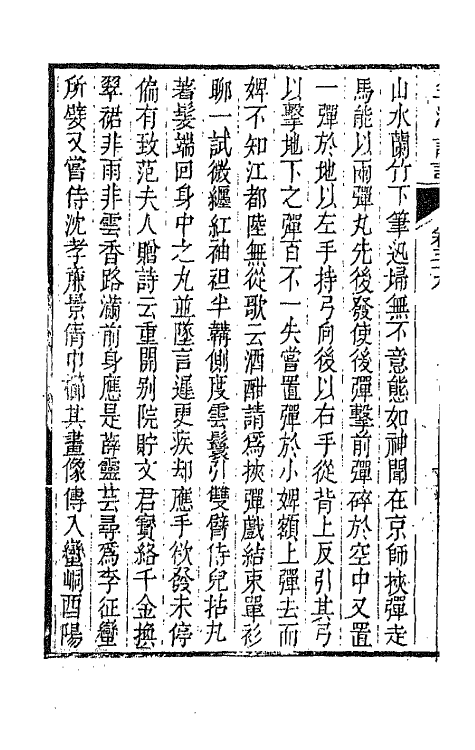 山水蘭竹下筆迅埽無不意態如神聞在京師挾彈走
馬能以兩彈丸先後發使後彈擊前彈碎於空中又置
一彈於地以左手持弓向後以右手從背上反引其弓
以擊地下之彈百不一失嘗置彈於小婢額上彈去而
婢不知江都陸無從歌云酒酣請爲挾彈戲結束單衫
聊一試微纏紅袖袒半韝側度雲鬟引雙臂侍兒拈丸
著髮端回身中之丸並墜言遲更疾却應手欲發未停
偏有致范夫人贈詩云重開别院貯文君寳絡千金換
翠裙非雨非雲香路滿前身應是薛靈芸尋爲李征蠻
所嬖又嘗侍沈孝廉景倩巾櫛其畫像傳入蠻峒酉陽